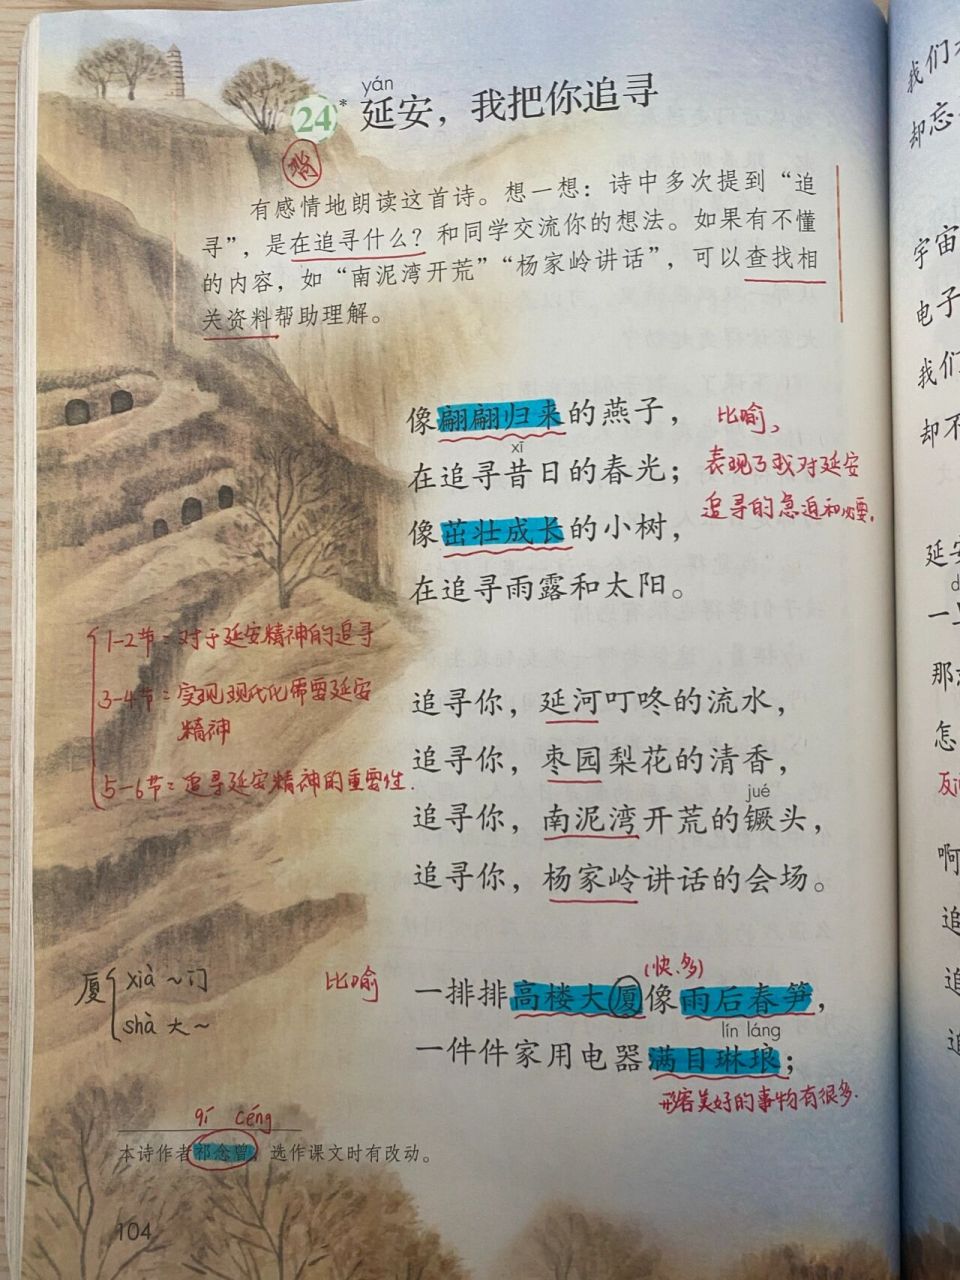 yán
24* 延安，我把你追寻
有感情地朗读这首诗。想一想：诗中多次提到“追
寻”，是在追寻什么？和同学交流你的想法。如果有不懂
的内容，如“南泥湾开荒”“杨家岭讲话”，可以查找相
关资料帮助理解。
像翩翩归来的燕子，
比喻，
xī
在追寻昔日的春光；
表现了我对延安
追寻的急迫和必要.
像茁壮成长的小树，
在追寻雨露和太阳。
1-2节：对于延安精神的追寻
3-4节：实现现代化需要延安
精神
5-6节：追寻延安精神的重要性.
追寻你，延河叮咚的流水，
追寻你，枣园梨花的清香，
jué
追寻你，南泥湾开荒的镢头，
追寻你，杨家岭讲话的会场。
厦 xià ～门
shà 大～
比喻
(快、多)
一排排高楼大厦像雨后春笋，
lín láng
一件件家用电器满目琳琅；
形容美好的事物有很多.
qí céng
本诗作者祁念曾，选作课文时有改动。
104
我们
却忘
宇宙
电子
我们
却不
延安
一旦
那
怎
啊
追
追
追